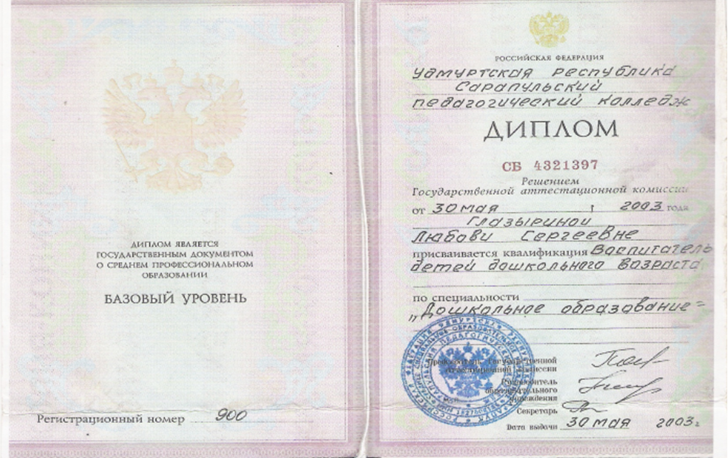 ДИПЛОМ ЯВЛЯЕТСЯ
ГОСУДАРСТВЕННЫМ ДОКУМЕНТОМ
О СРЕДНЕМ ПРОФЕССИОНАЛЬНОМ
ОБРАЗОВАНИИ
БАЗОВЫЙ УРОВЕНЬ
Регистрационный номер 900
РОССИЙСКАЯ ФЕДЕРАЦИЯ
Удмуртская республика
Сарапульский
педагогический колледж
ДИПЛОМ
СБ 4321397
Решением
Государственной аттестационной комиссии
от 30 мая 2003 года
Глазыриной
Любови Сергеевне
присваивается квалификация Воспитатель
детей дошкольного возраста
по специальности
„Дошкольное образование"
Государственной
аттестационной комиссии
Руководитель
образовательного
учреждения
Секретарь
Дата выдачи 30 мая 2003 г.